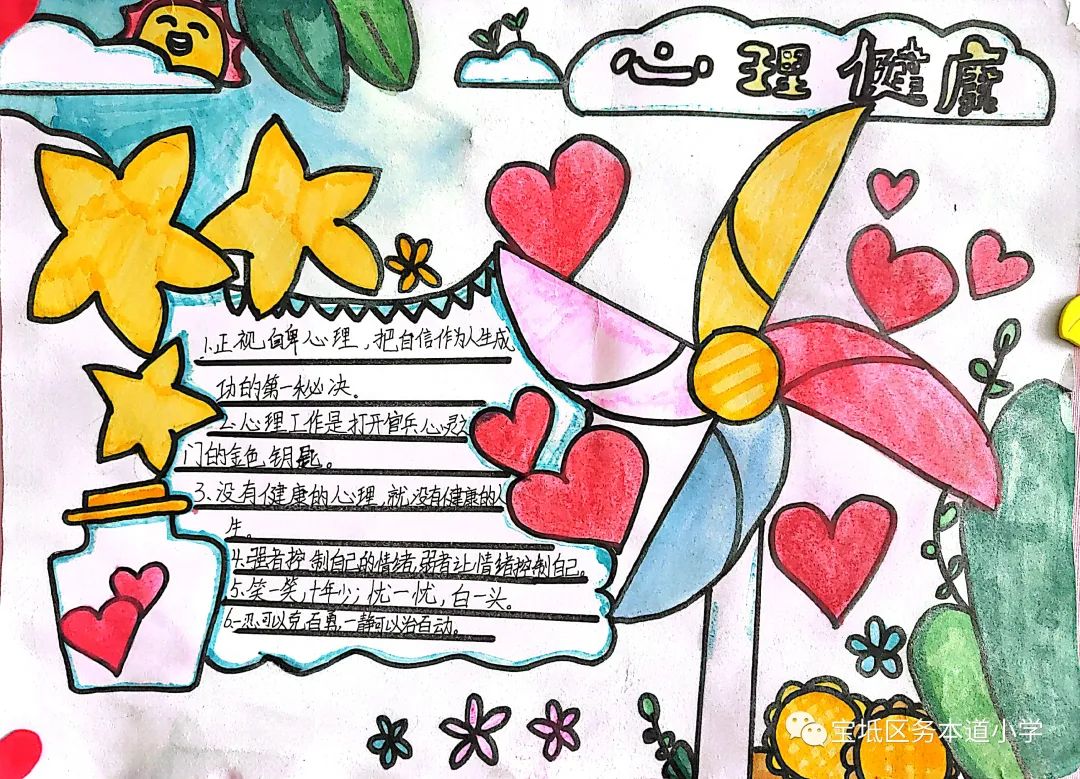 心理健康
1.正视自卑心理,把自信作为人生成
功的第一秘决。
2.心理工作是打开官兵心灵之
门的金色钥匙。
3.没有健康的心理,就没有健康的人
生。
4.强者控制自己的情绪,弱者让情绪控制自己。
5.笑一笑,十年少;忧一忧,白一头。
6.一忍可以克百勇,一静可以治百动。
宝坻区务本道小学